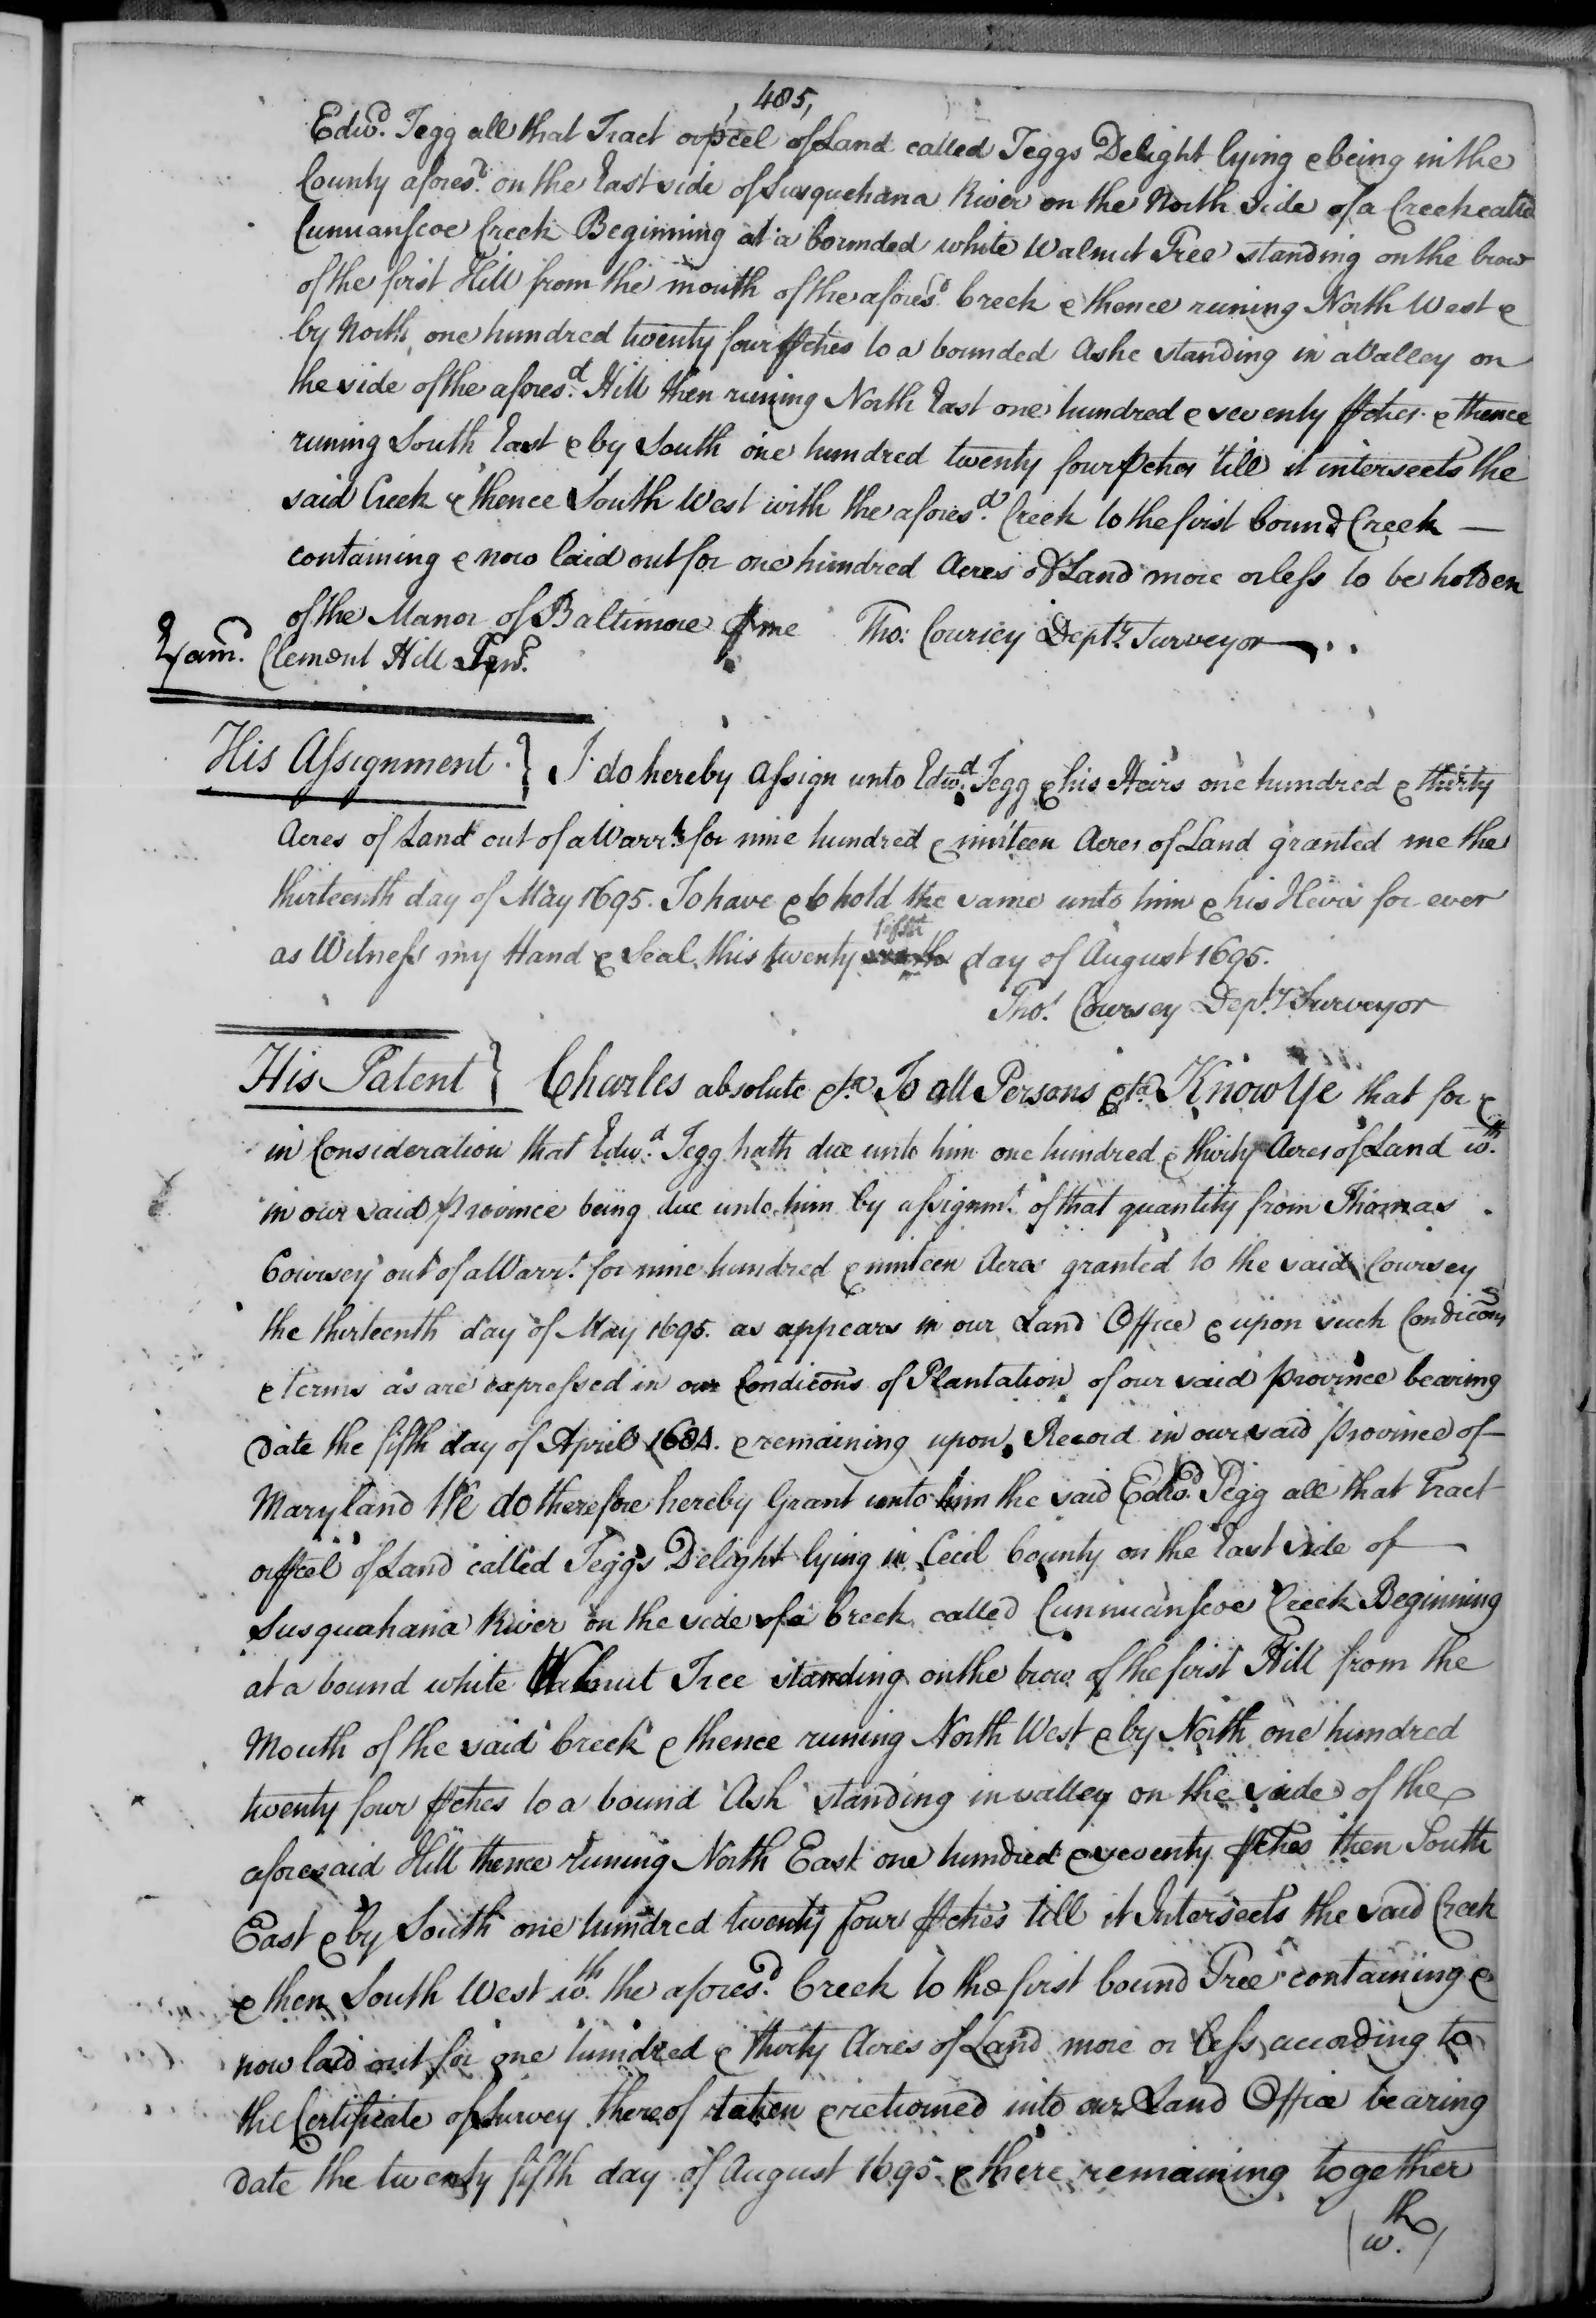 , 485,
Edwd. Tegg all that Tract or pcel of Land called Teggs Delight lying & being in the
County aforesd. on the East side of Susquehana River on the North Side of a Creek called
Cunnanscoe Creek Beginning at a bounded white Walnut Tree standing on the brow
of the first Hill from the mouth of the aforesd. Creek & thence runing North West &
by North one hundred twenty four pches to a bounded Ashe standing in a Valley on
the side of the aforesd. Hill then runing North East one hundred & seventy pches & thence
runing South East & by South one hundred twenty four pches till it intersects the
said Creek & thence South West with the aforesd. Creek to the first bound Creek —
containing & now laid out for one hundred Acres of Land more or less to be holden
of the Manor of Baltimore p me Tho: Coursey Depty. Surveyor
Exam. Clement Hill
His Assignment. } I do hereby Assign unto Edwd. Tegg & his Heirs one hundred & thirty
Acres of Land out of a Warrt. for nine hundred & ninteen Acres of Land granted me the
thirteenth day of May 1695. To have & to hold the same unto him & his Heirs for ever
as Witness my Hand & Seal this twenty fifth day of August 1695.
Tho: Coursey Depty. Surveyor
His Patent } Charles absolute &ta. To all Persons &ta. Know Ye that for &
in Consideration that Edwd. Tegg hath due unto him one hundred & thirty Acres of Land wth.
in our said province being due unto him by assignmt. of that quantity from Thomas
Coursey out of a Warrt. for nine hundred & ninteen Acres granted to the said Coursey
the thirteenth day of May 1695. as appears in our Land Office & upon such Condicons
& terms as are expressed in our Condicons of Plantation of our said province bearing
Date the fifth day of April 1684. & remaining upon Record in our said province of
Maryland We do therefore hereby Grant unto him the said Edwd. Tegg all that Tract
or pcel of Land called Teggs Delight lying in Cecil County on the East side of
Susquahana River on the side of a Creek called Cunnuanscoe Creek Beginning
at a bound white Walnut Tree standing on the brow of the first Hill from the
Mouth of the said Creek & thence runing North West & by North one hundred
twenty four pches to a bound Ash standing in valley on the side of the
aforesaid Hill thence runing North East one hundred & seventy pches then South
East & by South one hundred twenty four pches till it Intersects the said Creek
& then South West wth. the aforesd. Creek to the first bound Tree containing &
now laid out for one hundred & thirty Acres of Land more or less according to
the Certificate of Survey thereof taken & returned into our Land Office bearing
Date the twenty fifth day of August 1695 & there remaining together
wth.